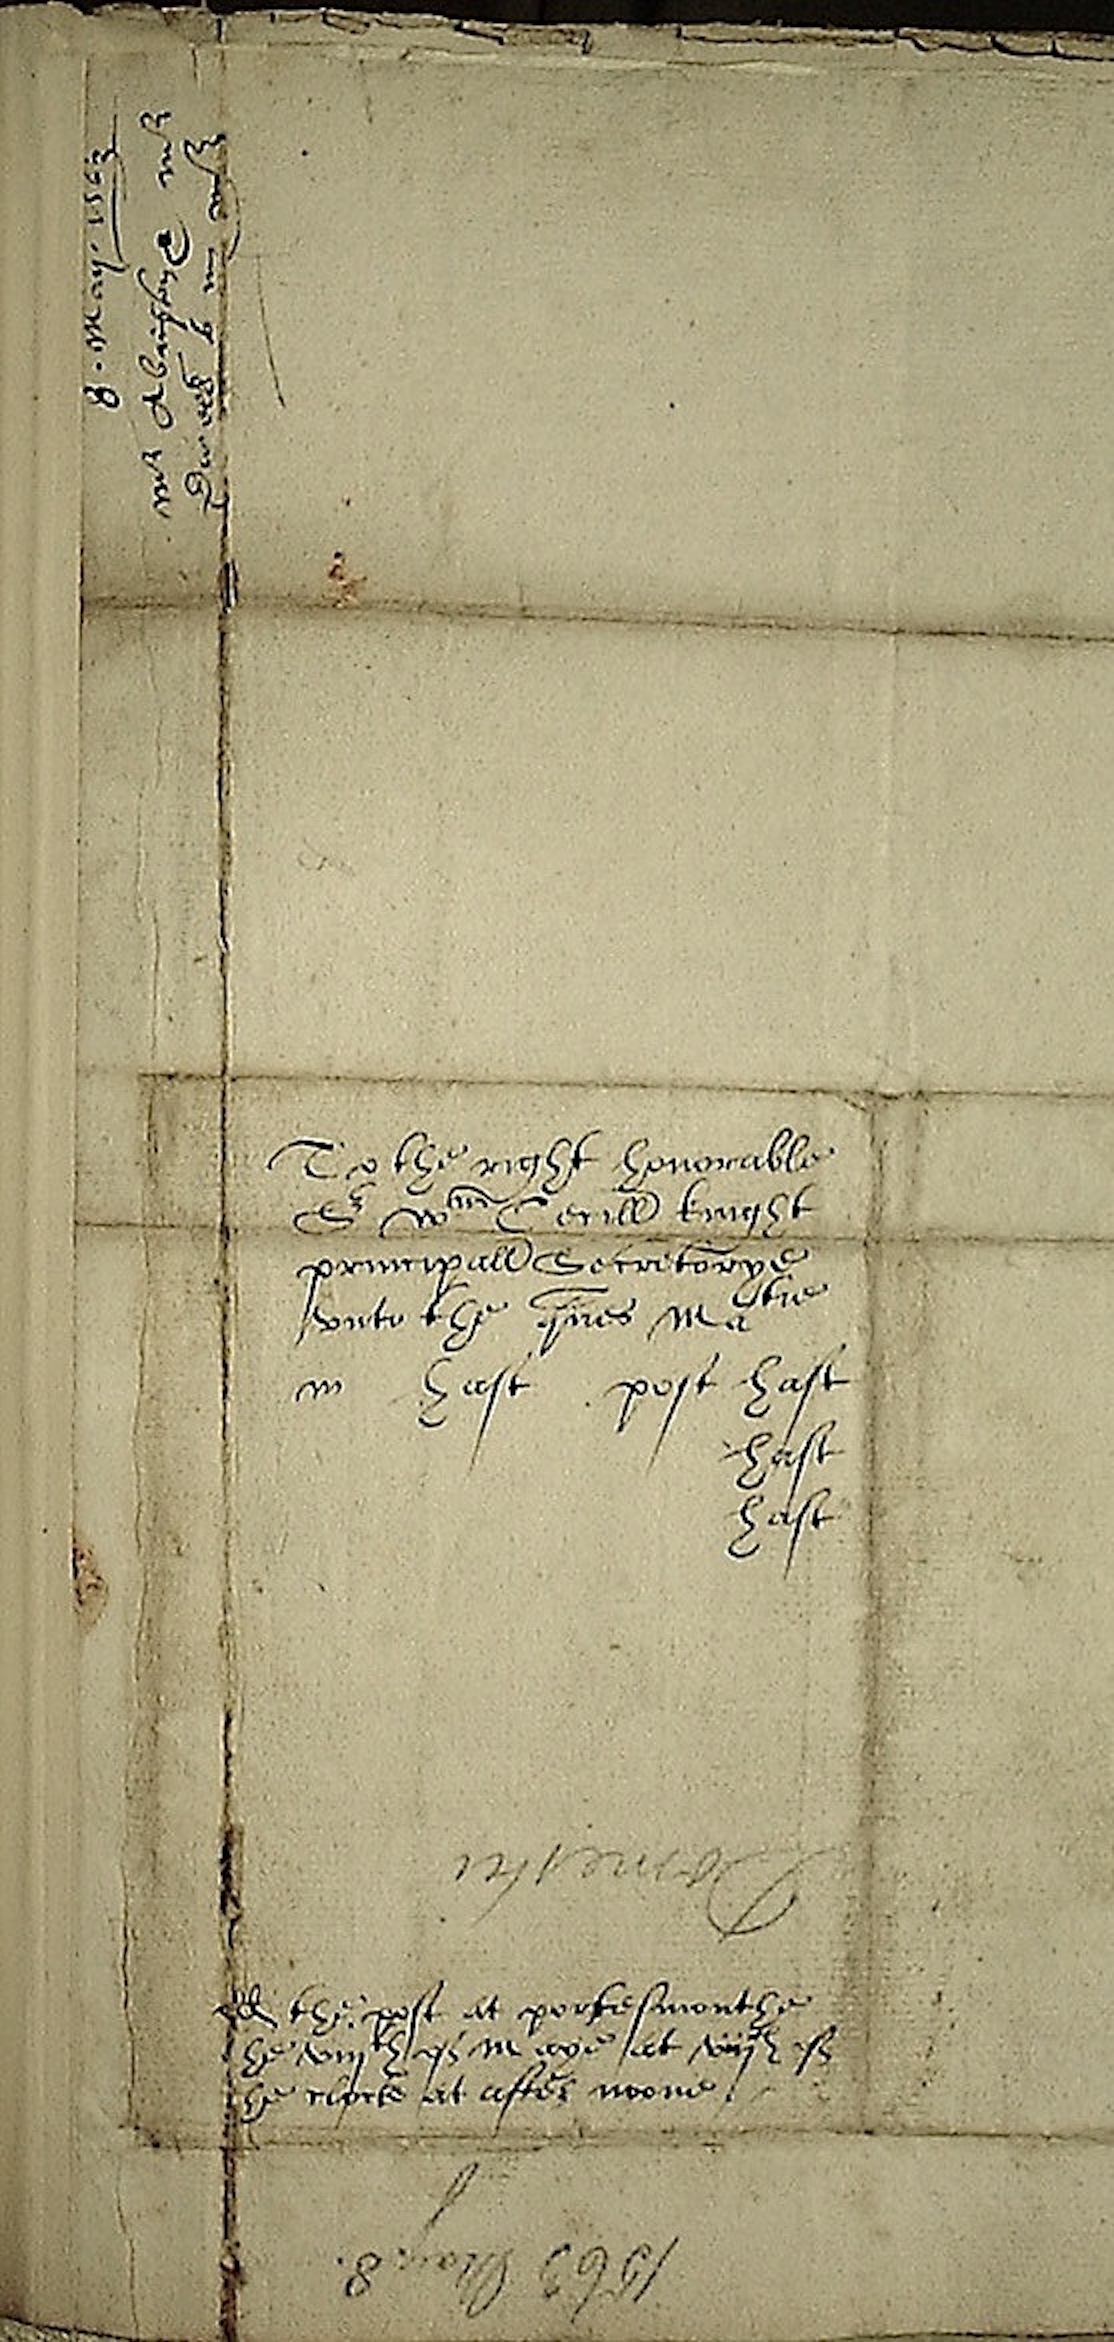 8. May. 1563
mr Abington mr
To the right honorable
Sr Wm Cecill knight
principall Secretorye
vnto the quenes Matie
in hast post hast
hast
hast
Domestic
the post at portesmouthe
he viijth of Maye at viijth of
he clocke at after noone
1563 May. 8.